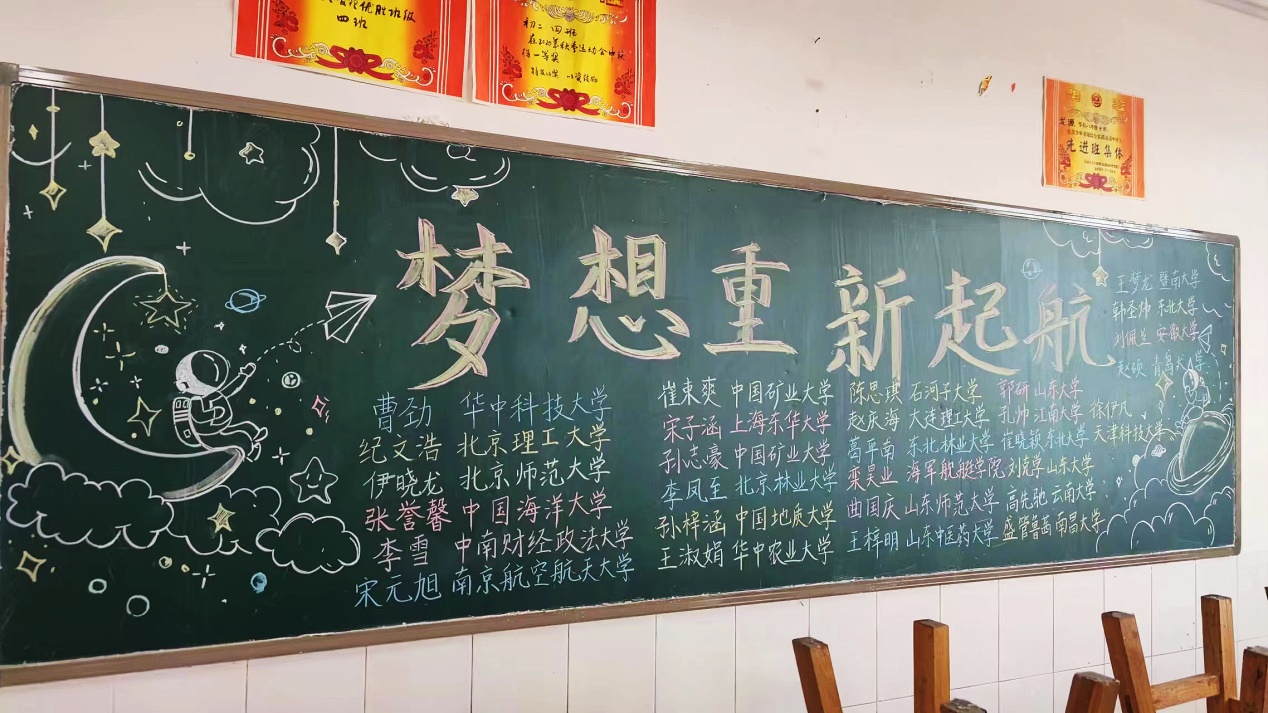 优胜班级
四班
初二 四班
在2020年秋季运动会中获
得一等奖
先进班集体
梦想重新起航
曹劲 华中科技大学
纪文浩 北京理工大学
伊晓龙 北京师范大学
张誉馨 中国海洋大学
李雪 中南财经政法大学
宋元旭 南京航空航天大学
崔束爽 中国矿业大学
宋子涵 上海东华大学
孙志豪 中国矿业大学
李凤至 北京林业大学
孙梓涵 中国地质大学
王淑娟 华中农业大学
陈思琪 石河子大学
赵庆海 大连理工大学
葛平南 东北林业大学
栾昊业 海军舰艇学院
曲国庆 山东师范大学
王梓明 山东中医药大学
郭研 山东大学
孔帅 江南大学
崔晓颖 东北大学
刘克学 山东大学
高先驰 云南大学
盛管鲁茜 南昌大学
徐伊凡
天津科技大学
王梦龙 暨南大学
韩圣炜 东北大学
刘佩兰 安徽大学
赵硕 青岛大学